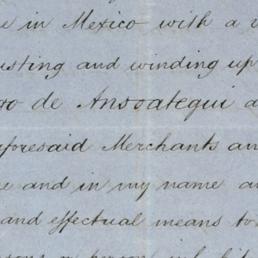 in Mexico with a
and winding up
de Ansoategui
aforesaid Merchants an
and in my name
and effectual means to